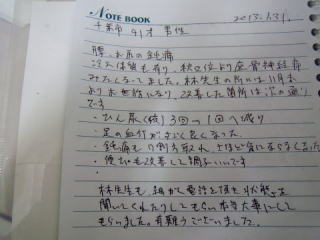 NOTE BOOK 2013.1.31.
千葉市 41才 男性
腰、お尻の鈍痛
冷え体質も有り、秋口位より座骨神経痛
みたくなってました。林先生の所には11月よ
りお世話になり、改善した箇所は次の通り
です
・ひん尿(夜) 3回→1回へ減り
・足の血行がすごく良くなった
・鈍痛も 割方取れ、さほど気にならなくなった
・便ぴも改善して調子いいです
林先生も、細かく電話を頂き状態を
聞いてくれたりしてもらい本当大事にして
もらいました。有難うございました。